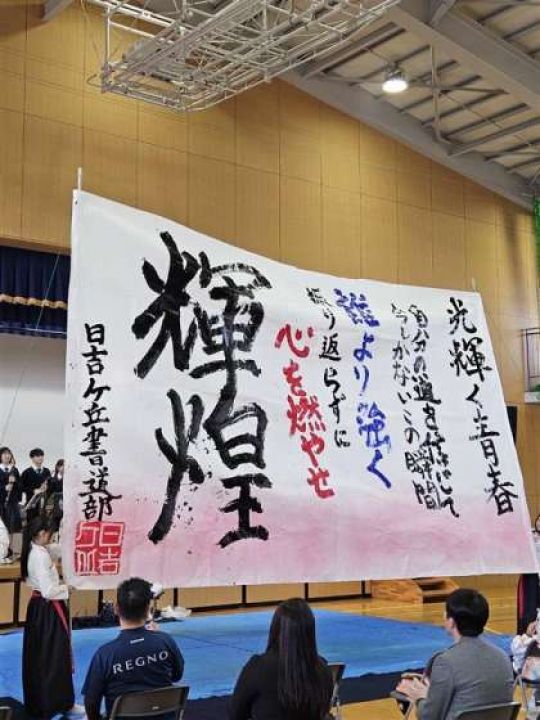 光輝く青春
自分の道を信じて
今しかないこの瞬間
誰より強く
振り返らずに
心を燃やせ
輝煌
日吉ケ丘書道部
日吉ケ丘
REGNO